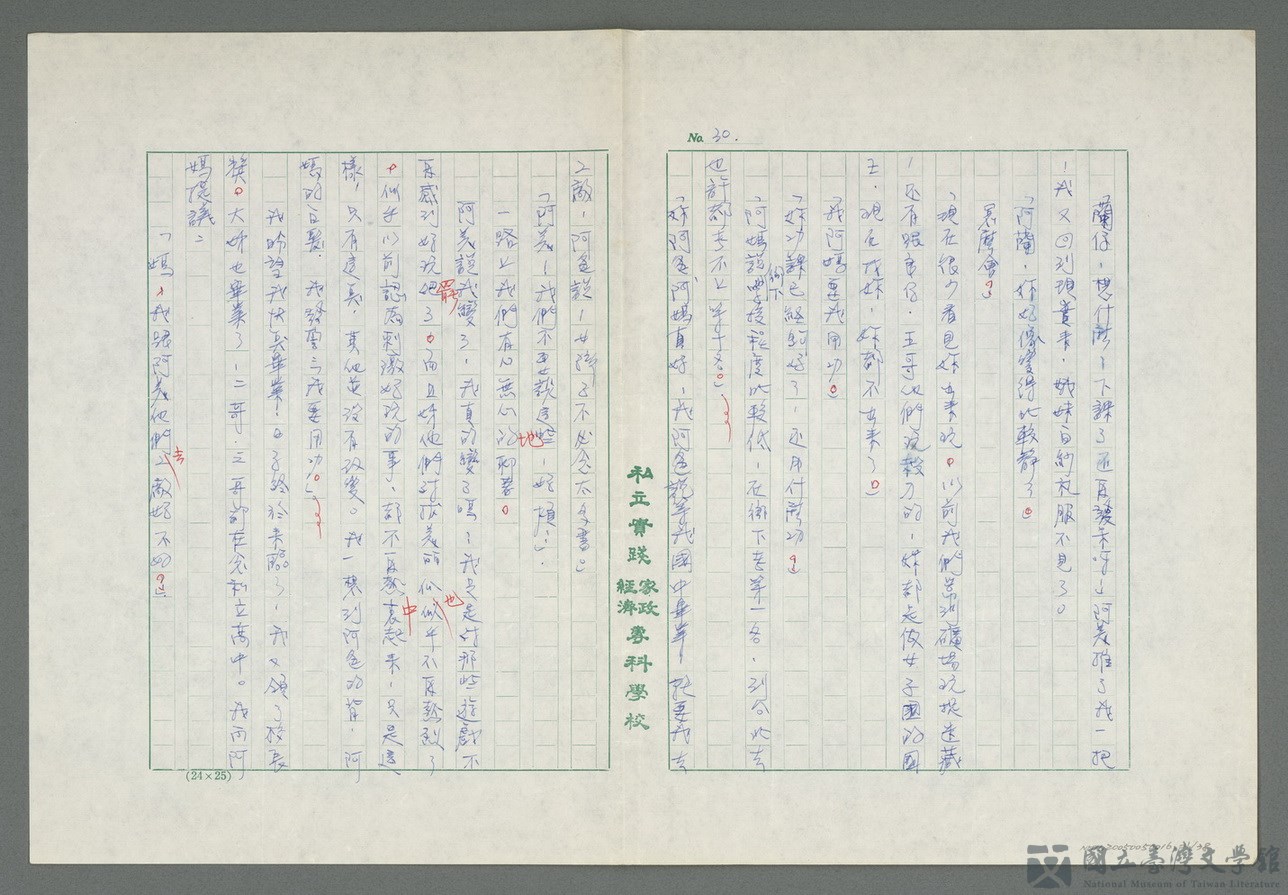 No. 30.
「蘭仔,想什麼?下課了還再讀未呀!」阿美推了我一把
,我又回到現實來,姊妹白的禮服不見了。
「阿蘭,妳好像變得比較靜了。」
「怎麼會?」
「現在很少看見妳出來玩。以前我們常到礦場玩捉迷藏
,還有跟帝仔、五哥他們玩殺刀的,妳都是做女子國的國
王,現在找妳,妳都不出來了。」
「我阿媽要我用功。」
「妳功課已經夠好了,還用什麼功?」
「阿媽說學校程度比較低,在鄉下考第一名,到台北去
鄉下
也許都考不上半千名。」
「妳阿爸、阿媽真好,我阿爸說等我國中畢業,就要我去
私立實踐家政經濟專科學校
工廠,阿爸說,女孩子不必念太多書。」
「阿美,我們不要談這些,好煩!」
一路上我們有心無心地聊著。
阿美說我變了,我真的變了嗎?我只是對那些遊戲不
再感到好玩罷了。而且妹他們對抓美麗仔似乎也不再熱烈了
。似乎以前認為刺激好玩的事,都不再熱衷起來,只是這
樣,只有這頁,其他並沒有改變。我一想到阿爸的背,阿
媽的白髮,我發覺了我要用功。」
我盼望我快點畢業!日子終於來臨了,我又領了校長
獎。大姊也畢業了,二哥、三哥都在念私立高中。我向阿
媽提議:
「媽,我跟阿美他們去工廠好不好?」
(24×25)
國立臺灣文學館
National Museum of Taiwan Literature